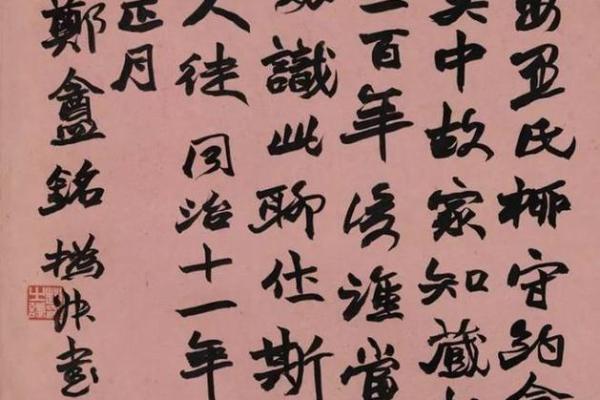 氏柳守約
吳中故家知藏
二百年後誰當
識此聊仕斯
人徒 同治十一年
正月
鄭盦銘 撝叔書